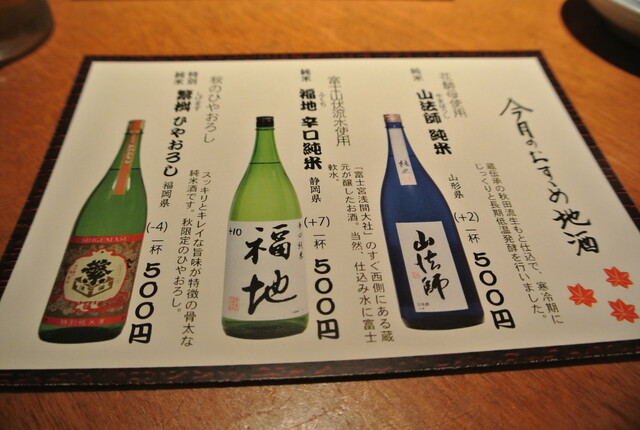 今月のおすすめ地酒
花酵母使用
純米 山法師 純米
山形県
(+2) 一杯 500円
蔵伝承の秋田流生もと仕込で、寒冷期に
じっくりと長期低温発酵を行いました。
純米
山法師
富士山伏流水使用
純米 福地 辛口純米
ふくち
静岡県
(+7) 一杯 500円
「富士宮浅間大社」のすぐ西側にある蔵
元が醸したお酒。当然、仕込み水に富士
軟水。
+10
福地
秋のひやおろし
特別
純米 繁桝 ひやおろし
しげます
福岡県
(-4) 一杯 500円
スッキリとキレイな旨味が特徴の骨太な
純米酒です。秋限定のひやおろし。
SHIGEMASU
繁
特別純米酒